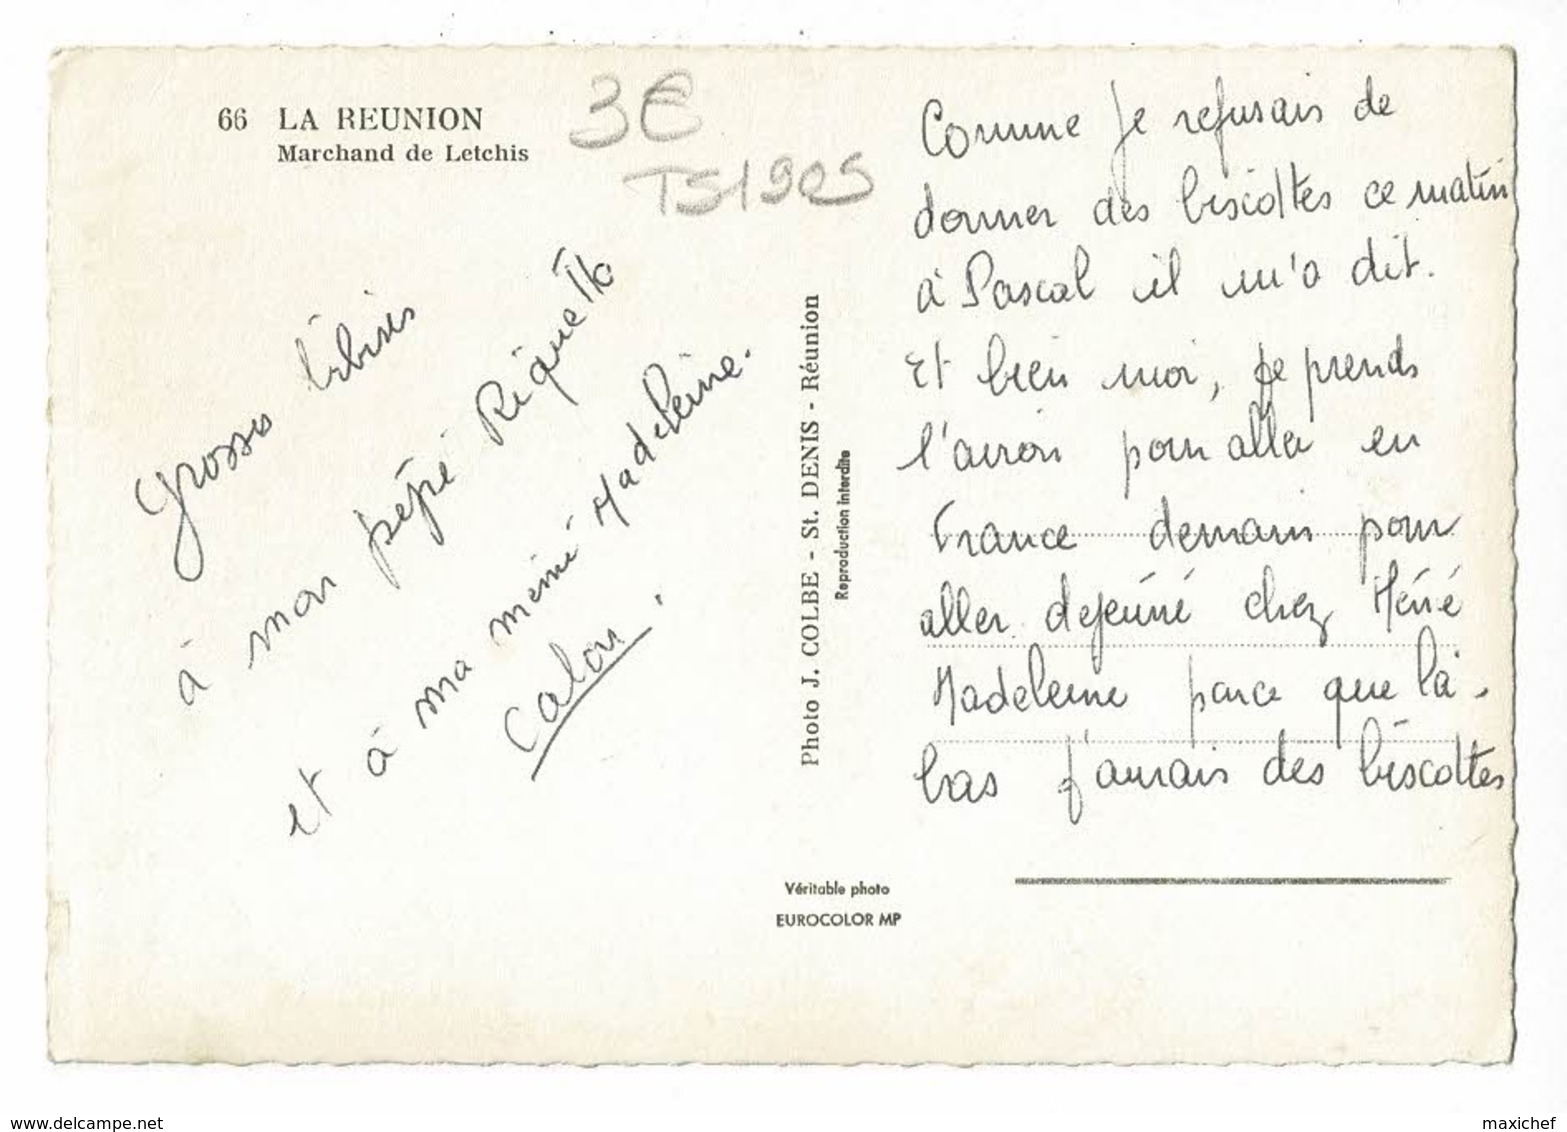 66 LA REUNION
Marchand de Letchis
3€
TS1905
Grosses bibises
à mon pépé Riquetto
et à ma mémé Madeleine.
Calou.
Photo J. COLBE - St. DENIS - Réunion
Reproduction interdite
Véritable photo
EUROCOLOR MP
Comme je refusais de
donner des biscottes ce matin
à Pascal il m'a dit.
Et bien moi, je prends
l'avion pour aller en
France demain pour
aller dejeuné chez Mémé
Madeleine parce que là-
bas j'aurais des biscottes
www.delcampe.net
maxichef